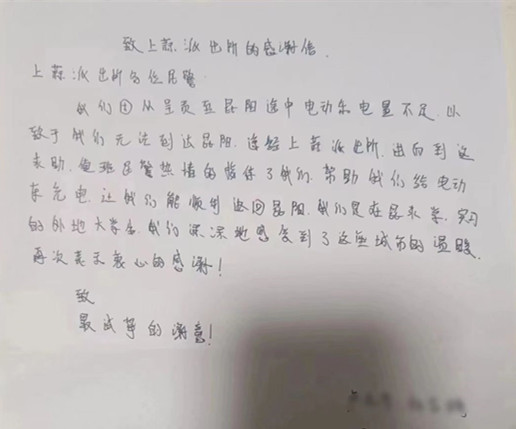 致上蒜派出所的感谢信.
上蒜派出所各位民警
我们④从呈贡至昆阳途中电动车电量不足,以
致于我们无法到达昆阳.途经上蒜派出所.进入到这
求助.值班民警热情的接待了我们.帮助我们给电动
车充电.让我们能顺利返回昆阳.我们是在昆求学,实习
的外地大学生.我们深深地感受到了这座城市的温暖.
再次表示衷心的感谢!
致
最诚挚的谢意!